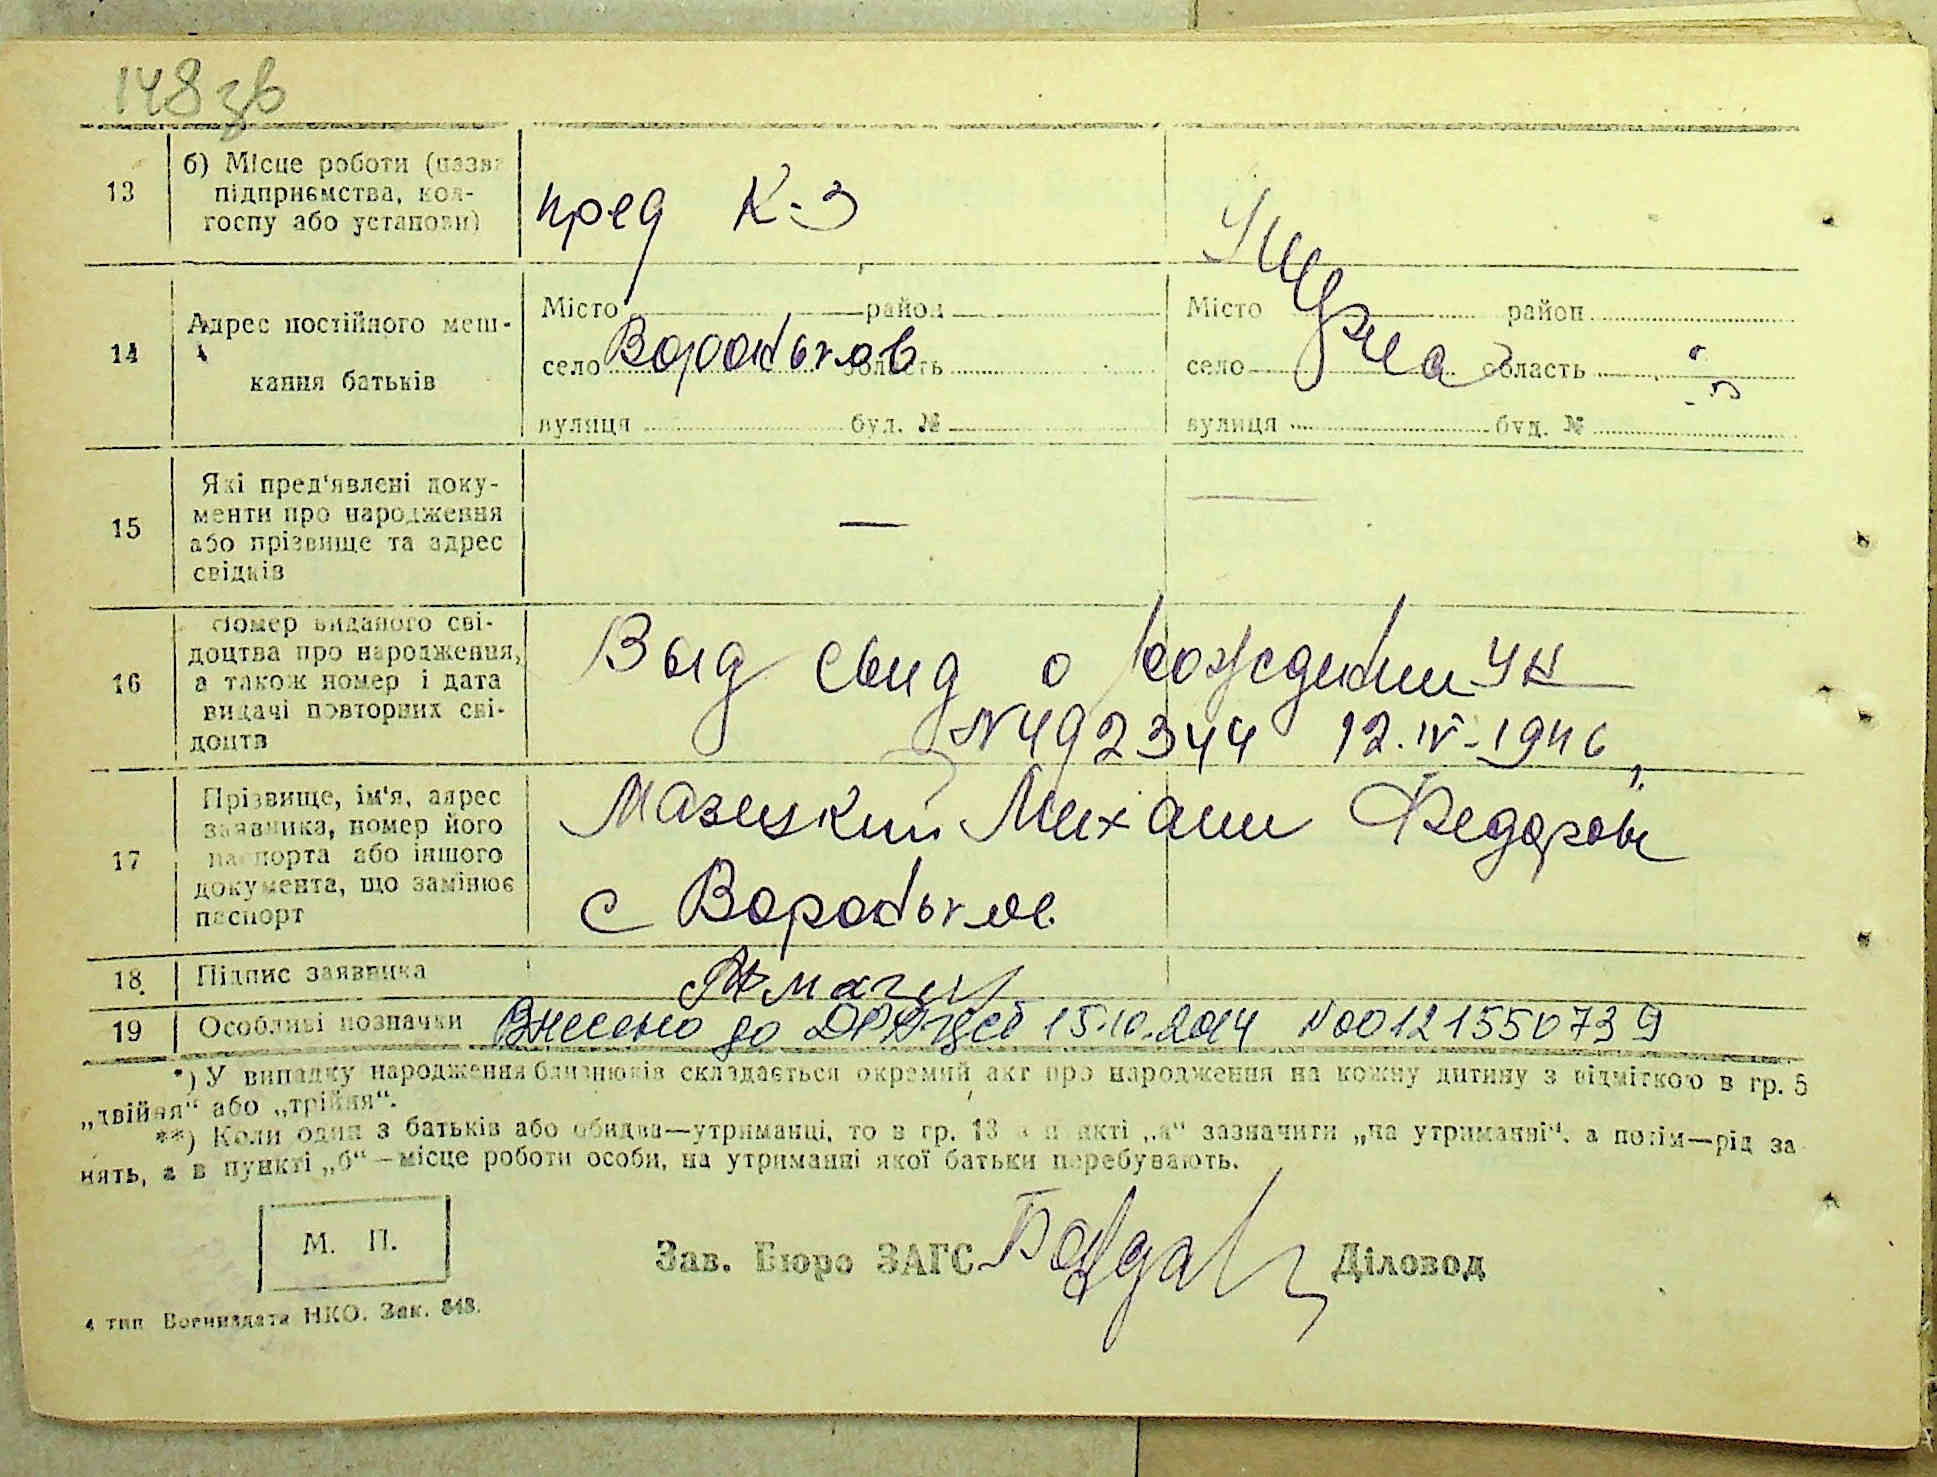 148 зв
13
б) Місце роботи (назва
підприємства, кол-
госпу або установи)
пред к-з
Умерла
14
Адрес постійного меш-
кання батьків
Місто район
село Воробьив область
вулиця буд. №
Місто район
село область
вулиця буд. №
15
Які пред'явлені доку-
менти про народження
або прізвище та адрес
свідків
—
—
16
Номер виданого сві-
доцтва про народження,
а також номер і дата
видачі повторних сві-
доцтв
Выд свид о рождении УН
N492344 12.IV-1946
17
Прізвище, ім'я, адрес
заявника, номер його
паспорта або іншого
документа, що замінює
паспорт
Михаил Федоров
с
18
Підпис заявника
19
Особливі позначки
Внесено до 15.10.2014 N00121550739
*) У випадку народження близнюків складається окремий акт про народження на кожну дитину з відміткою в гр. 5
„двійня“ або „трійня“.
**) Коли один з батьків або обидва—утриманці, то в гр. 13 в пункті „а“ зазначити „на утриманні“, а потім—рід за-
нять, а в пункті „б“—місце роботи особи, на утриманні якої батьки перебувають.
М. П.
Зав. Бюро ЗАГС
Діловод
4 тип Воениздата НКО. Зак. 848.